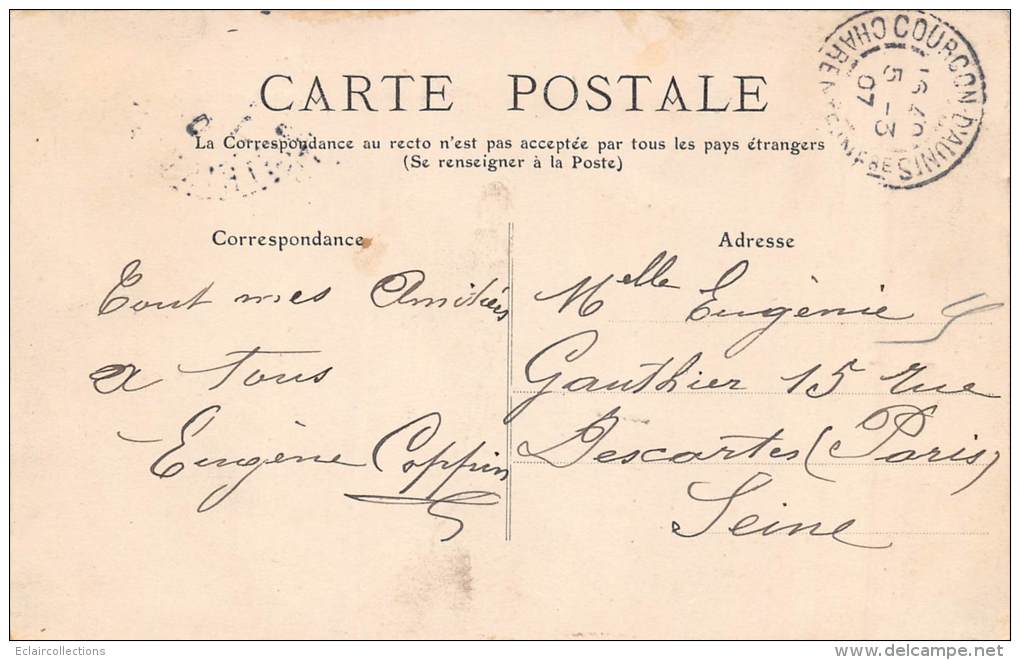 CARTE POSTALE
La Correspondance au recto n'est pas acceptée par tous les pays étrangers
(Se renseigner à la Poste)
COURÇON-D'AUNIS
CHARENTE-INFRE
16 40
5 - 3
07
Correspondance
Tout mes Amitiés
a Tous
Eugène Coppin
Adresse
Melle Eugènie
Gauthier 15 rue
Descartes (Paris)
Seine
Eclaircollections
www.delcampe.net